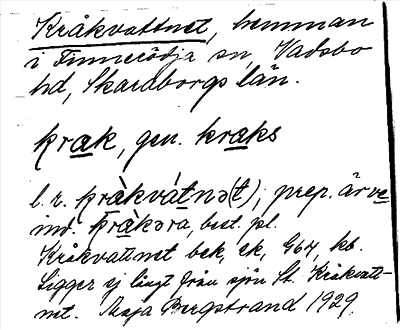 Kråkvattnet, hemman
i Finnerödja sn, Vadsbo
hd, Skaraborgs län.
krak, gen. kraks
l. r. kràkvátnə(t); prep. är
ind. kràkəra, best. pl.
Kråkvattnet bek, ek, G64, kb.
Ligger ej långt från sjön St. Kråkvatt-
net. Maja Bergstrand 1929.